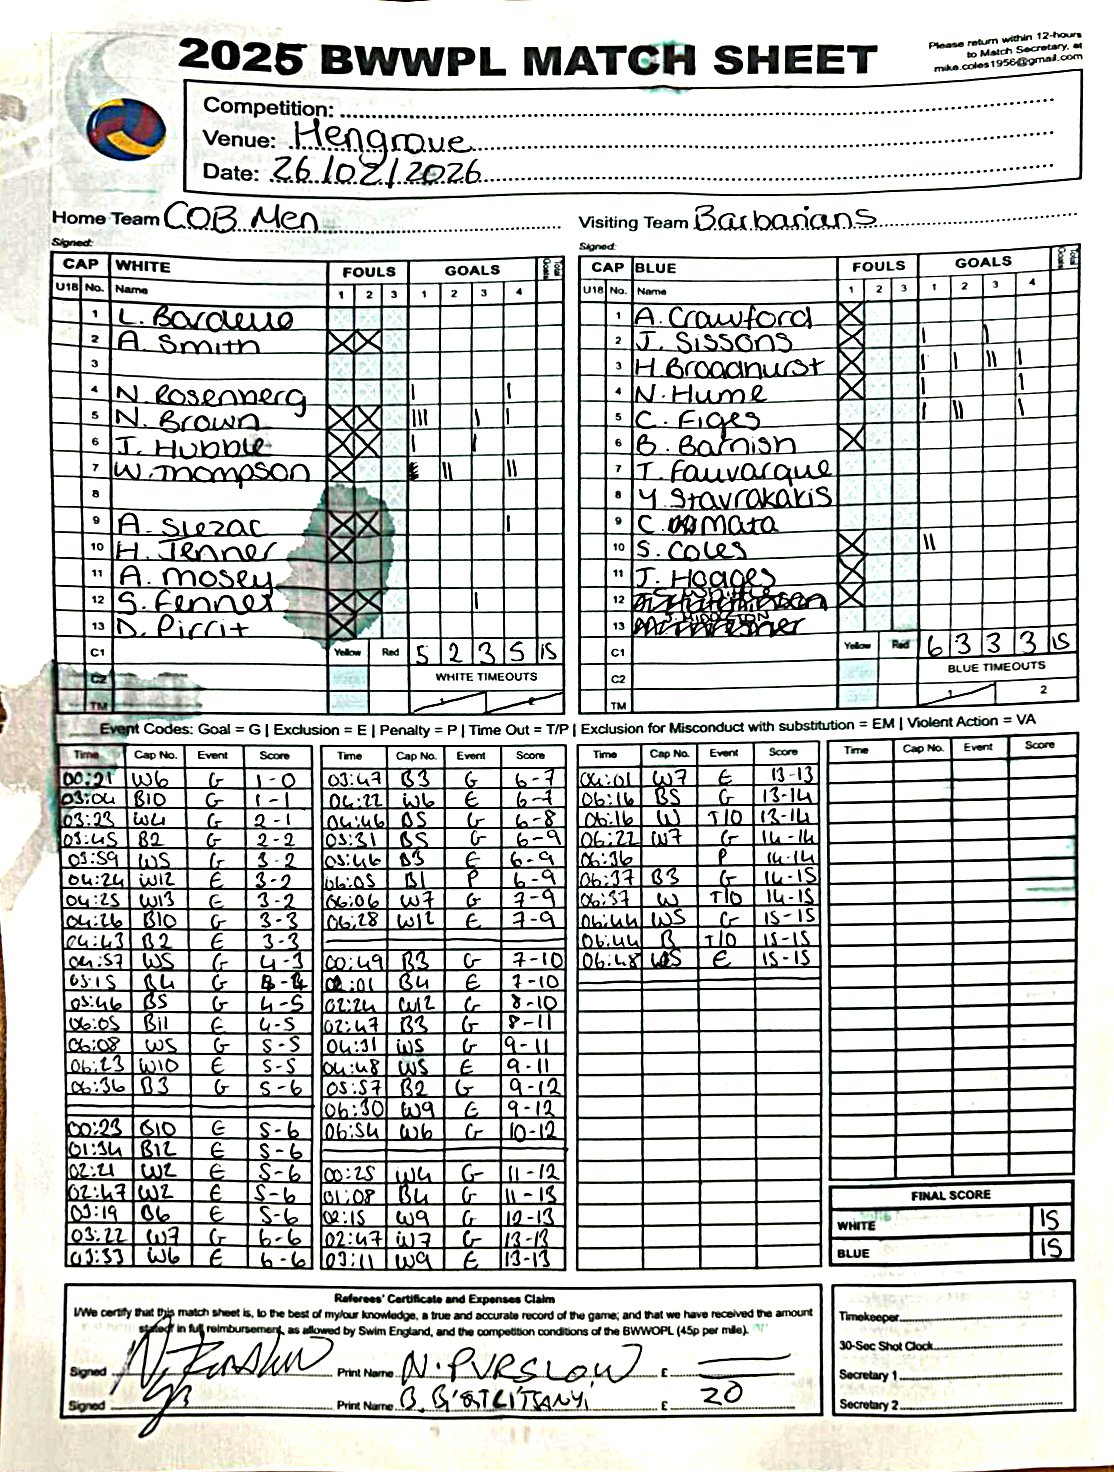 2025 BWWPL MATCH SHEET
Please return within 12-hours
to Match Secretary, at
mike.coles1956@gmail.com
Competition:
Venue: Hengrove
Date: 26/02/2026
Home Team COB Men
Visiting Team Barbarians
Signed:
Signed:
CAP WHITE FOULS GOALS Total Goals
U18 No. Name 1 2 3 1 2 3 4
1 L. Bardelle
2 A. Smith X X
3
4 N. Rosenberg | |
5 N. Brown X X ||| | |
6 J. Hubble X X | |
7 W. Thompson X || ||
8
9 A. Slezac X X |
10 H. Jenner X
11 A. Mosey
12 S. Fenner X X |
13 D. Pirrit X
C1 Yellow Red 5 2 3 5 15
C2 WHITE TIMEOUTS
TM 1 2
CAP BLUE FOULS GOALS Total Goals
U18 No. Name 1 2 3 1 2 3 4
1 A. Crawford X
2 J. Sissons X | |
3 H. Broadhurst X | | || |
4 N. Hume X | |
5 C. Figes | || |
6 B. Barnish X
7 T. Fauvarque
8 Y. Stavrakakis
9 C. Mata
10 S. Coles X ||
11 J. Hodges X
12 X
13
C1 Yellow Red 6 3 3 3 15
C2 BLUE TIMEOUTS
TM 1 2
Event Codes: Goal = G | Exclusion = E | Penalty = P | Time Out = T/P | Exclusion for Misconduct with substitution = EM | Violent Action = VA
Time Cap No. Event Score
00:21 W6 G 1-0
03:04 B10 G 1-1
03:23 W4 G 2-1
03:45 B2 G 2-2
03:59 W5 G 3-2
04:24 W12 E 3-2
04:25 W13 E 3-2
04:26 B10 G 3-3
04:43 B2 E 3-3
04:57 W5 G 4-3
05:15 B4 G
05:46 B5 G 4-5
06:05 B11 E 4-5
06:08 W5 G 5-5
06:23 W10 E 5-5
06:36 B3 G 5-6
00:23 B10 E 5-6
01:34 B12 E 5-6
02:21 W2 E 5-6
02:47 W2 E 5-6
03:19 B6 E 5-6
03:22 W7 G 6-6
03:33 W6 E 6-6
Time Cap No. Event Score
03:47 B3 G 6-7
04:22 W6 E 6-7
04:46 B5 G 6-8
05:31 B5 G 6-9
05:46 B3 E 6-9
06:05 B1 P 6-9
06:06 W7 G 7-9
06:28 W12 E 7-9
00:49 B3 G 7-10
02:01 B4 E 7-10
02:24 W12 G 8-10
02:47 B3 G 8-11
04:31 W5 G 9-11
04:48 W5 E 9-11
05:57 B2 G 9-12
06:30 W9 E 9-12
06:54 W6 G 10-12
00:25 W4 G 11-12
01:08 B4 G 11-13
02:15 W9 G 12-13
02:47 W7 G 13-13
03:11 W9 E 13-13
Time Cap No. Event Score
04:01 W7 E 13-13
06:16 B5 G 13-14
06:16 W T/O 13-14
06:22 W7 G 14-14
06:36 P 14-14
06:37 B3 G 14-15
06:37 W T/O 14-15
06:44 W5 G 15-15
06:44 B T/O 15-15
06:48 W5 E 15-15
Time Cap No. Event Score
FINAL SCORE
WHITE 15
BLUE 15
Referees' Certificate and Expenses Claim
I/We certify that this match sheet is, to the best of my/our knowledge, a true and accurate record of the game; and that we have received the amount
stated in full reimbursement, as allowed by Swim England, and the competition conditions of the BWWOPL (45p per mile).
Signed Print Name N. PURSLOW £
Signed Print Name £ 20
Timekeeper
30-Sec Shot Clock
Secretary 1
Secretary 2